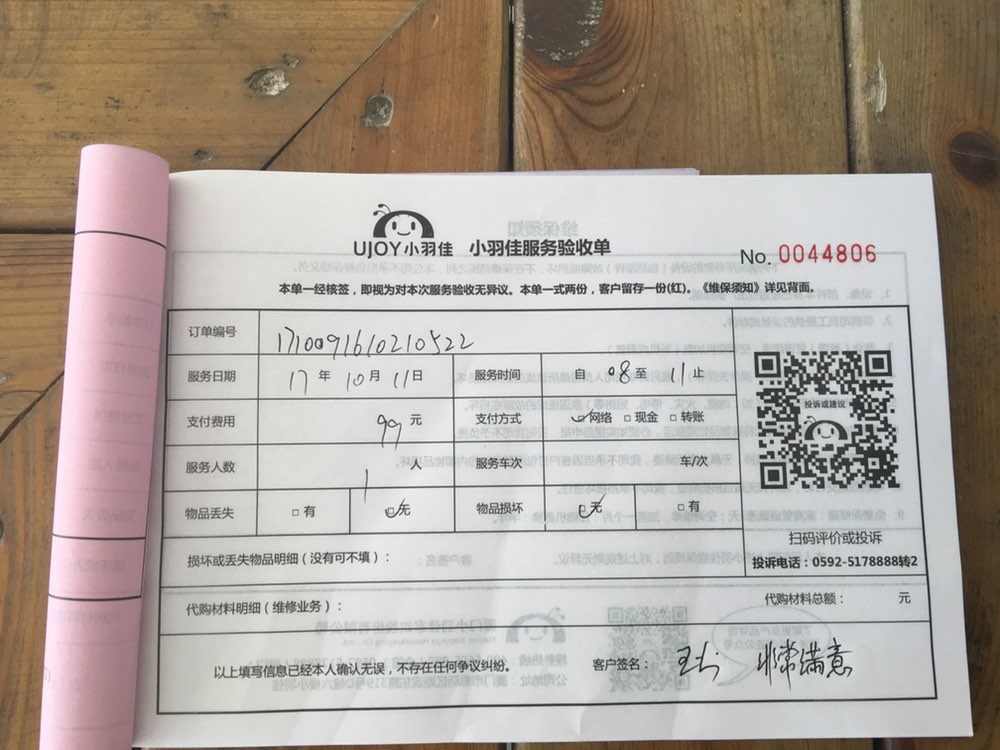 UJOY小羽佳 小羽佳服务验收单
No. 0044806
本单一经核签，即视为对本次服务验收无异议。本单一式两份，客户留存一份(红)。《维保须知》详见背面。
订单编号 171009161021052​2
服务日期 17年10月11日 服务时间 自08至11止
支付费用 99元 支付方式 ☑网络 □现金 □转账
服务人数 1人 服务车次 车/次
物品丢失 □有 ☑无 物品损坏 ☑无 □有
投诉或建议
扫码评价或投诉
投诉电话：0592-5178888转2
损坏或丢失物品明细（没有可不填）：
代购材料明细（维修业务）： 代购材料总额： 元
以上填写信息已经本人确认无误，不存在任何争议纠纷。 客户签名： 非常满意